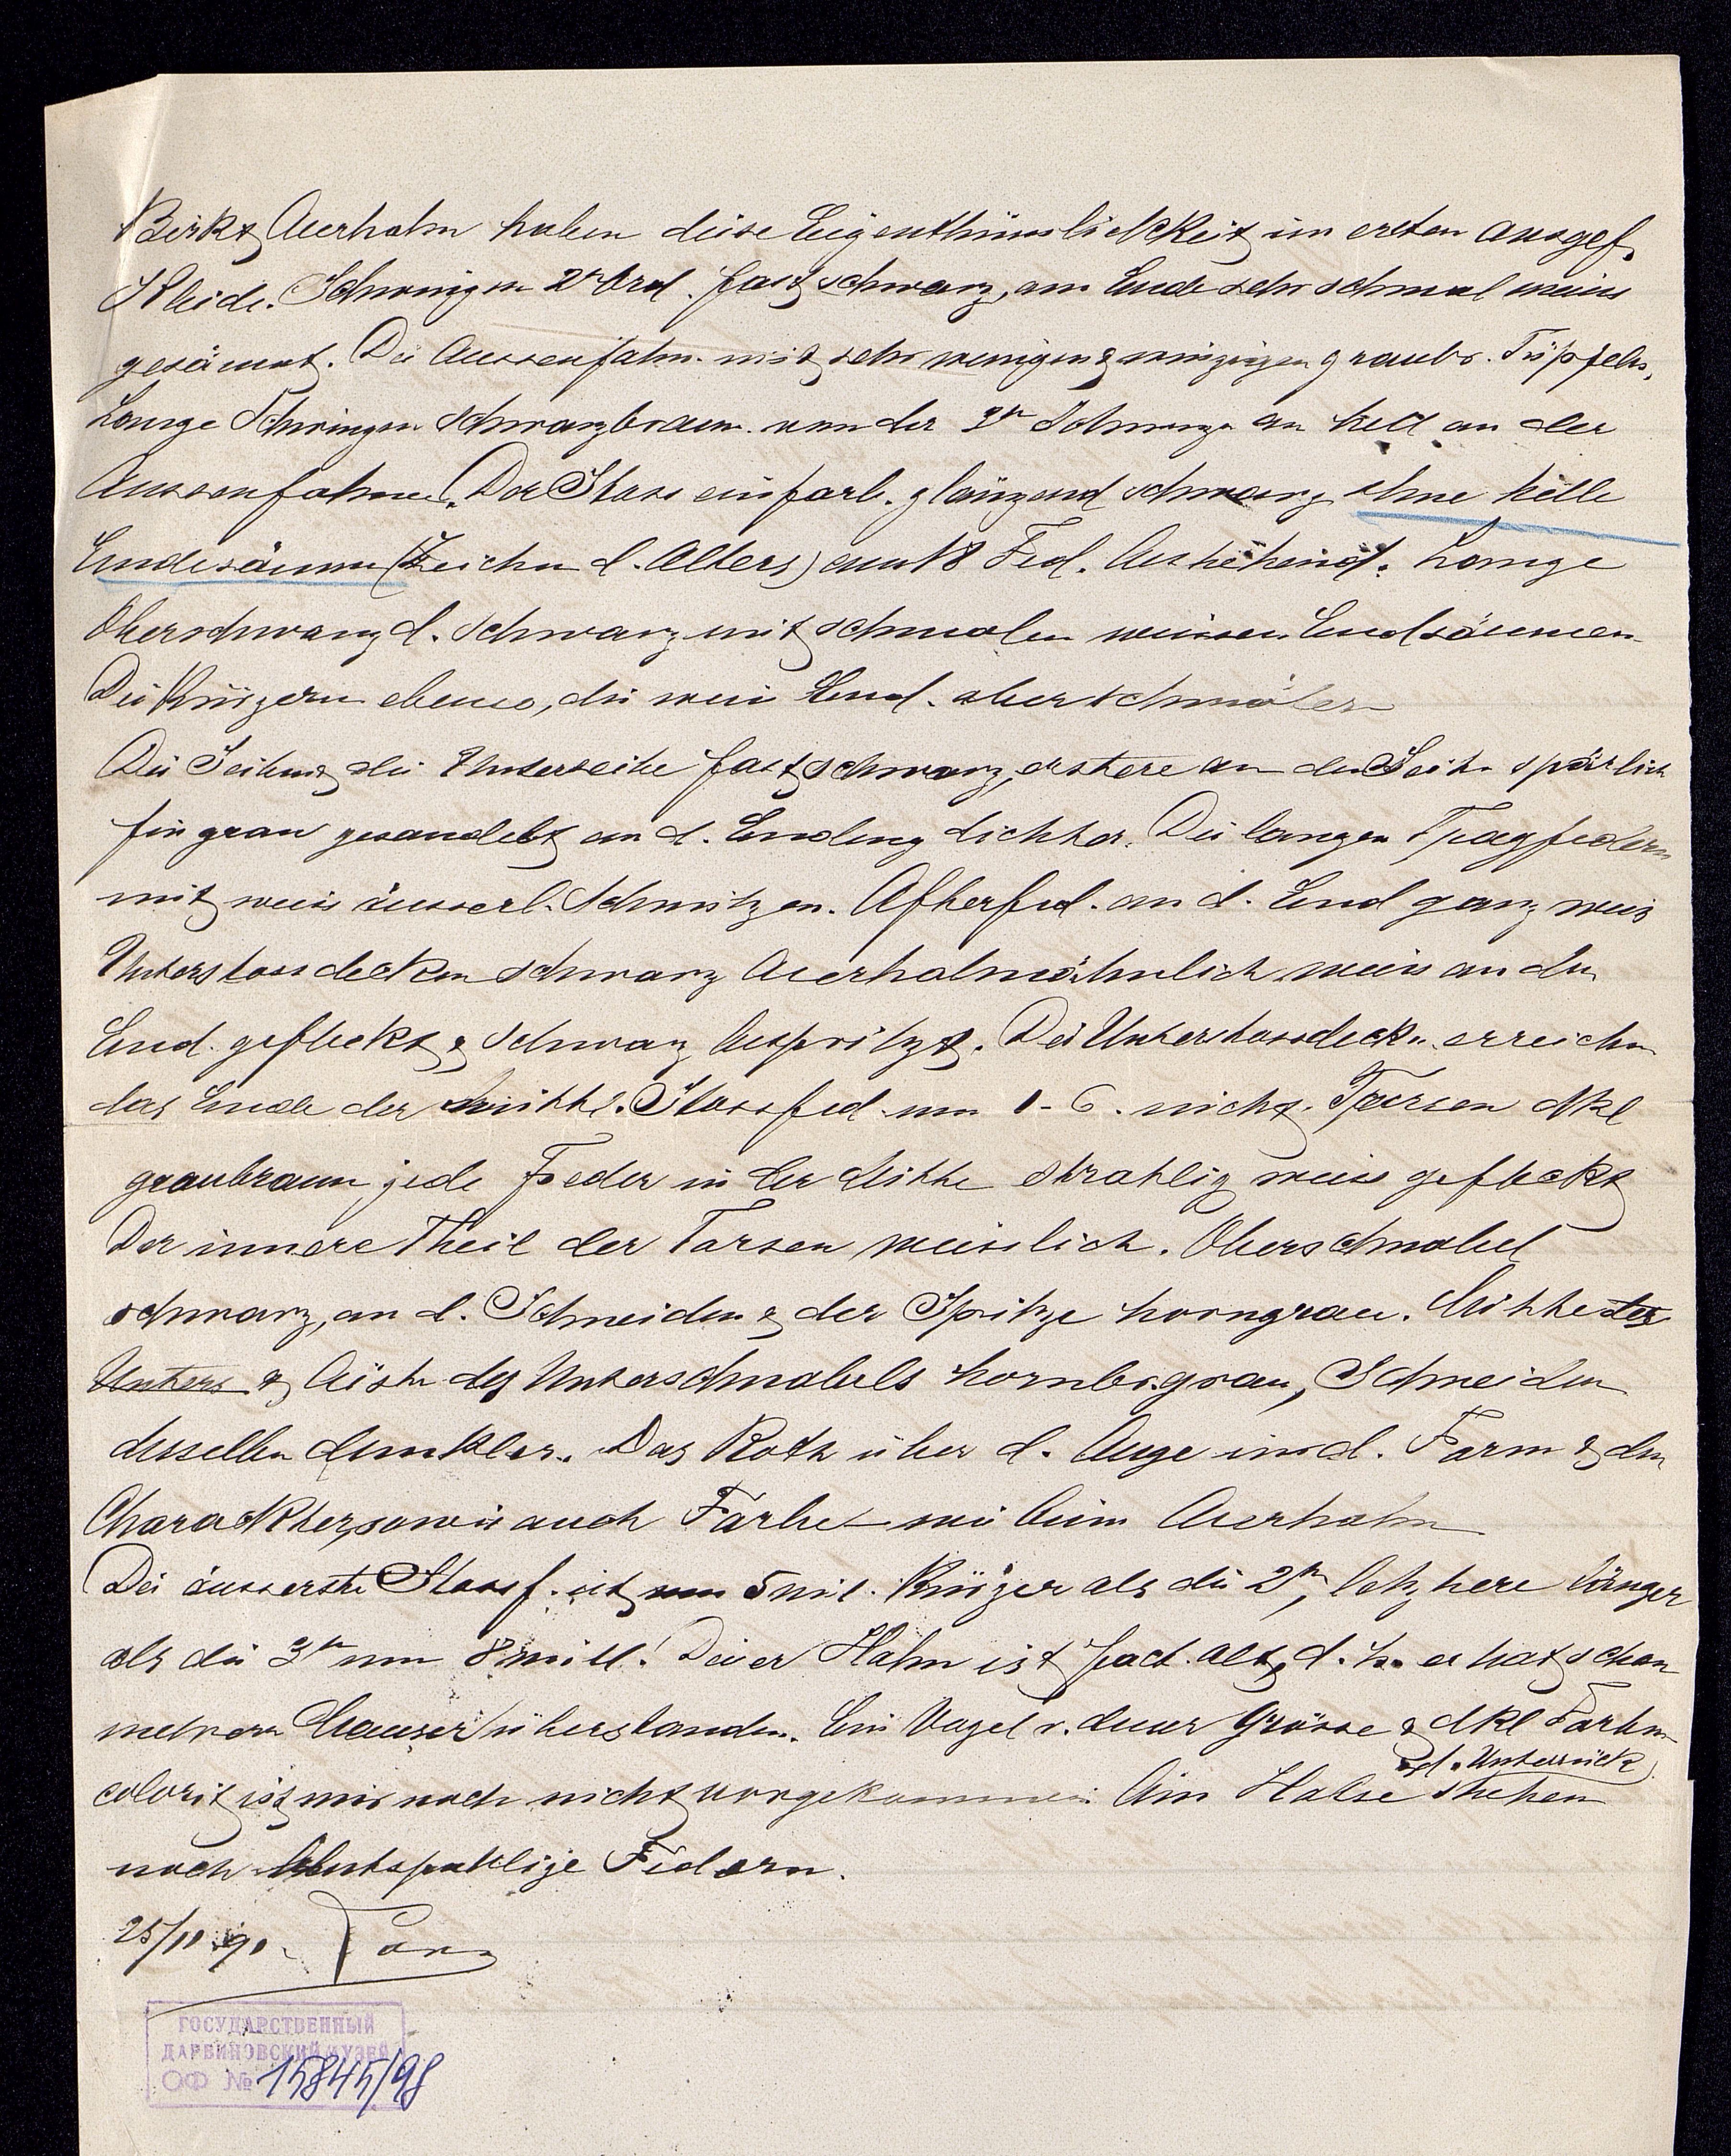 Birk & Auerhahn haben diese Eigenthümlichkeit im ersten ausgef.
Kleide. Schwingen 2r Ord. fast schwarz, am Ende sehr schmal weiss
gesäumt. Die Aussenfahn. mit sehr wenigen & winzigen graubr. Tüpfeln,
Lange Schwingen schwarzbraun. von der 2n Schwinge an hell an der
Aussenfahne. Der Stoss einfarb. glänzend schwarz ohne helle
Endesäume (Zeichen d. Alters) aus 18 Fed. bestehend. Lange
Oberschwanzd. schwarz mit schmalen weissen Endsäumen
Die Kürzern ebenso, die weis End. aber schmäler
Die Seiten & die Unterseite fast schwarz, erstere an den Seiten spärlich
fein grau gesandelt, an d. Endung dichter. Die langen Tragfedern
mit weis äusserl. Schmitzen. Afterfed. an d. End ganz weis
Unterstossdecken schwarz Auerhahnähnlich weis an den
End. gefleckt & schwarz bespritzt. Die Unterstossdeck. erreichen
das Ende der mittl. Stossfed. um 1-6. nicht. Tarsen dkl
graubraun jede Feder in der Mitte strahlig weiss gefleckt
Der innere Theil der Tarsen weisslich. Oberschnabel
schwarz, an d. Schneiden & der Spitze horngrau. Mitte des
Unters & Äste des Unterschnabels hornbr.grau, Schneiden
desselben dunkler. Das Roth über d. Auge in d. Form & dem
Charackter, sowie auch Farbe wie beim Auerhahn
Die äusserste Stossf. ist um 5 mil. Kürzer als die 2te, letztere länger
als die 3te um 8 mill. Dieser Hahn ist fact. alt, d. h. er hat schon
mehrere Mauser überstanden. Ein Vogel v. dieser Grösse & dkl Farben
d. Unterrück
colorit ist mir noch nicht vorgekommen. Am Halse stehen
noch Federn.
25/11 90.
ГОСУДАРСТВЕННЫЙ
ДАРВИНОВСКИЙ МУЗЕЙ
ОФ № 15845/98